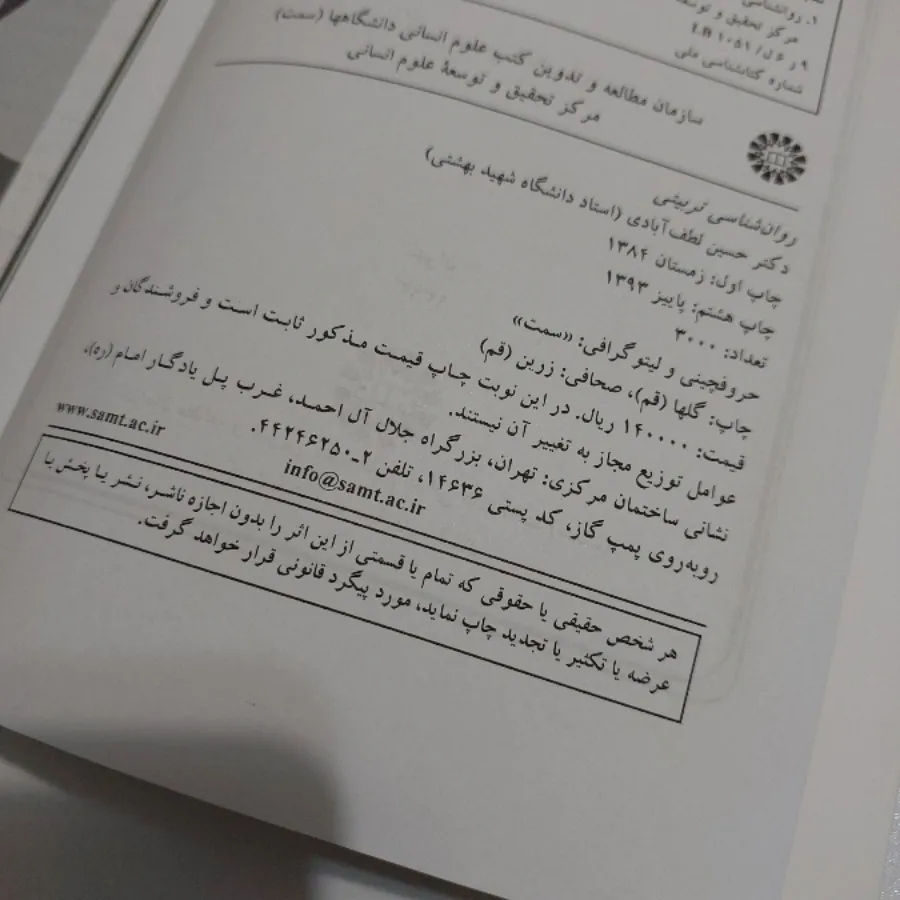 ۱. روانشناسی
مرکز تحقیق و توسعه
LB ۱۰۵۱ / ل ۶ ر ۹
شماره کتابشناسی ملی
سازمان مطالعه و تدوین کتب علوم انسانی دانشگاهها (سمت)
مرکز تحقیق و توسعهٔ علوم انسانی
روان‌شناسی تربیتی
دکتر حسین لطف‌آبادی (استاد دانشگاه شهید بهشتی)
چاپ اول: زمستان ۱۳۸۴
چاپ هشتم: پاییز ۱۳۹۳
تعداد: ۳۰۰۰
حروفچینی و لیتوگرافی: «سمت»
چاپ: گلها (قم)، صحافی: زرین (قم)
قیمت: ۱۴۰۰۰۰ ریال. در این نوبت چاپ قیمت مذکور ثابت است و فروشندگان و
عوامل توزیع مجاز به تغییر آن نیستند.
نشانی ساختمان مرکزی: تهران، بزرگراه جلال آل احمد، غرب پل یادگار امام (ره)،
روبه‌روی پمپ گاز، کد پستی ۱۴۶۳۶، تلفن ۲ـ۴۴۲۴۶۲۵۰.
www.samt.ac.ir
info@samt.ac.ir
هر شخص حقیقی یا حقوقی که تمام یا قسمتی از این اثر را بدون اجازه ناشر، نشر یا پخش یا
عرضه یا تکثیر یا تجدید چاپ نماید، مورد پیگرد قانونی قرار خواهد گرفت.